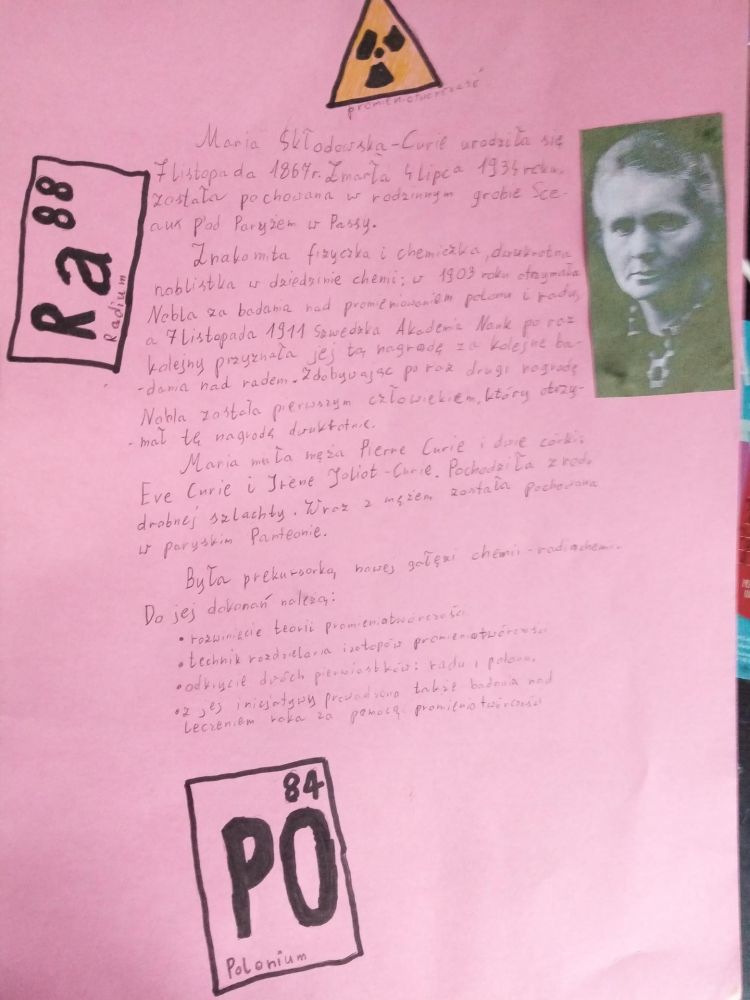 promieniotwórczość
Maria Skłodowska-Curie urodziła się
7 listopada 1867r. Zmarła 4 lipca 1934 roku,
została pochowana w rodzinnym grobie Sce-
aux pod Paryżem w Passy.
Znakomita fizyczka i chemiczka, dwukrotna
noblistka w dziedzinie chemi; w 1903 roku otrzymała
Nobla za badania nad promieniowaniem polonu i radu,
a 7 listopada 1911 Szwedzka Akademia Nauk po raz
kolejny przyznała jej tą nagrodę za kolejne ba-
-dania nad radem. Zdobywając po raz drugi nagrodę
Nobla została pierwszym człowiekiem, który otrzy-
-mał tę nagrodę dwukrotnie.
Maria miała męża Pierre Curie i dwie córki:
Eve Curie i Irene Joliot-Curie. Pochodziła z rodu
drobnej szlachty. Wraz z mężem została pochowana
w paryskim Panteonie.
Była prekursorką nowej gałęzi chemii - radiochemi.
Do jej dokonań należą:
• rozwinięcie teorii promieniotwórczości
• technik rozdzielania izotopów promieniotwórczości
• odkrycie dwóch pierwiastków: radu i polonu.
• z jej inicjatywy prowadzono także badania nad
leczeniem raka za pomocą promieniotwórczości
88
Ra
Radium
84
PO
Polonium